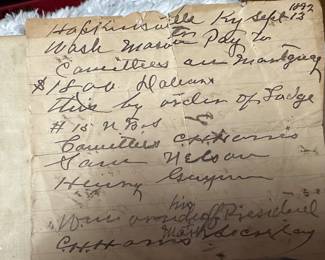 Hopkinsville Ky Sept 13 1892
Wash Mason Pay to
Comittees on Mortgag
$18.00 Dolians
this by order of Lodge
# 15 U.B.S
Comittee C.H. Harris
Sam Nelson
Henry Guynn
his
Wm President
C.H. Harris mark Secretay